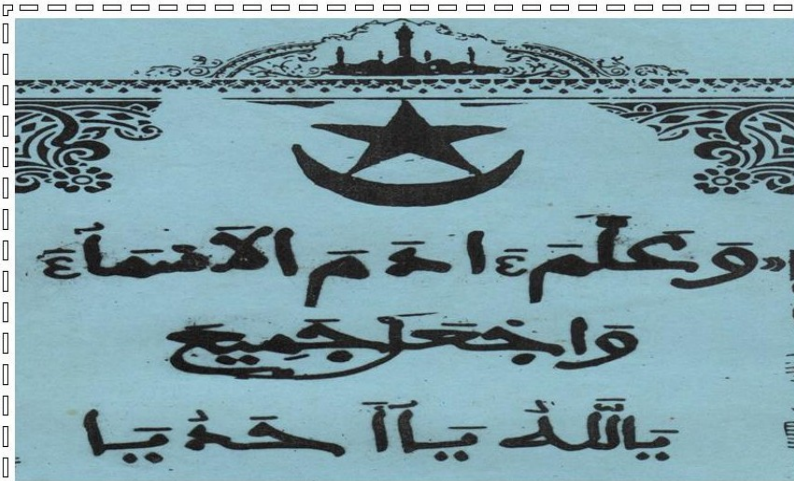 «وَعَلَّمَ ءَادَمَ الْأَسْمَاءَ
وَاجْعَلْ جَمِيعَ
يَااللَّهُ يَاأَحَدُ يَا